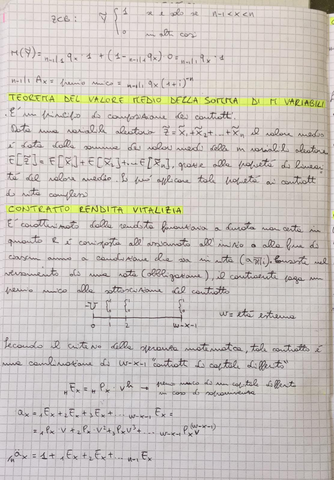 ZCB: Ỹ { 1 se e solo se n-1<x<n
0 in altri casi
M(Ỹ) = n-1|1 qx · 1 + (1 - n-1|1 qx) 0 = n-1|1 qx · 1
n-1|1 Ax = premio unico = n-1|1 qx (1+i)^-n
TEOREMA DEL VALORE MEDIO DELLA SOMMA DI M VARIABILI
. È un principio di composizione dei contratti.
Data una variabile aleatoria Z̃ = X̃1 + X̃2 + ... + X̃n il valore medio
è dato dalla somma dei valori medi delle m variabili aleatorie
E[Z̃] = E[X̃1] + E[X̃2] + ... E[X̃n], grazie alla proprietà di linea
tà del valore medio. Si può applicare tale proprietà ai contratti
di vita complessi
CONTRATTO RENDITA VITALIZIA
È caratterizzato dalla rendita finanziaria a durata non certa in
quanto R è corrisposta all'assicurato all'inizio o alla fine di
ciascun anno a condizione che sia in vita. Consiste nel
versamento di una rata (obbligazione), il contraente paga un
premio unico alla sottoscrizione del contratto
-U
0 1 2 w-x-1 w = età estrema
Secondo il criterio della speranza matematica, tale contratto è
una combinazione di w-x-1 "contratti di capitale differito"
nEx = nPx · v^n → premio unico di un capitale differito
in caso di sopravvivenza
ax = 1Ex + 2Ex + 3Ex + ... w-x-1Ex =
= 1Px · v + 2Px · v² + 3Px v³ + ... w-x-1Px v^(w-x-1)
/näx = 1 + 1Ex + 2Ex + ... n-1Ex